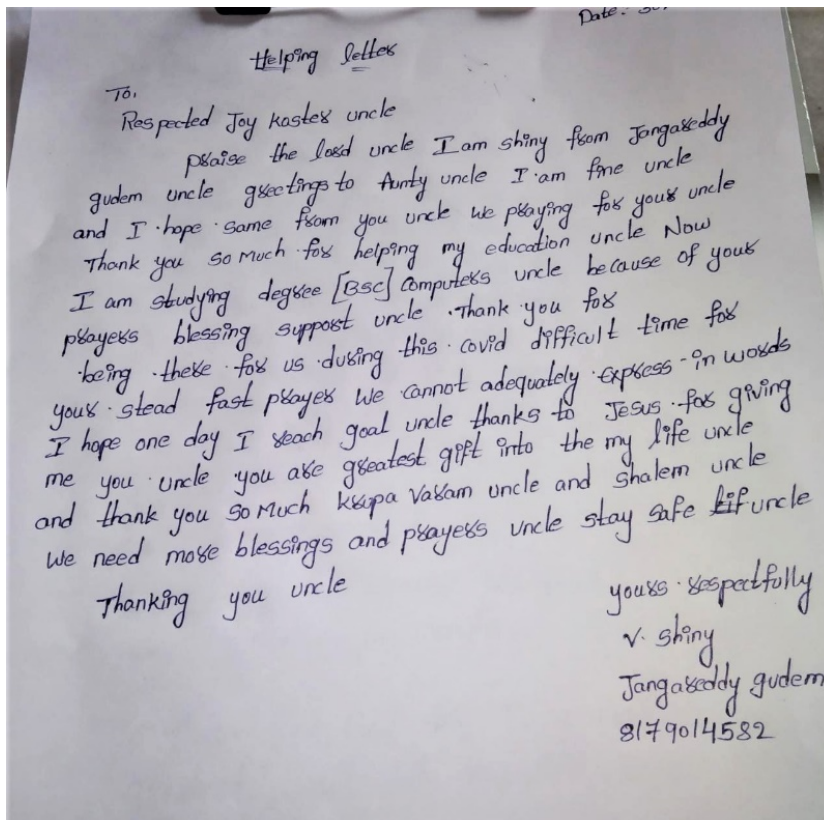 Date: 30
Helping letter
To,
Respected Joy koster uncle
praise the lord uncle I am shiny from Jangareddy
gudem uncle greetings to Aunty uncle I am fine uncle
and I hope same from you uncle we praying for your uncle
Thank you so much for helping my education uncle Now
I am studying degree [BSC] Computers uncle because of your
prayers blessing support uncle . Thank you for
being there for us during this covid difficult time for
your stead fast prayer we cannot adequately express in words
I hope one day I reach goal uncle thanks to Jesus for giving
me you uncle you are greatest gift into the my life uncle
and thank you so much krupa varam uncle and shalem uncle
we need more blessings and prayers uncle stay safe uncle
Thanking you uncle
yours respectfully
V. Shiny
Jangareddy gudem
8179014582